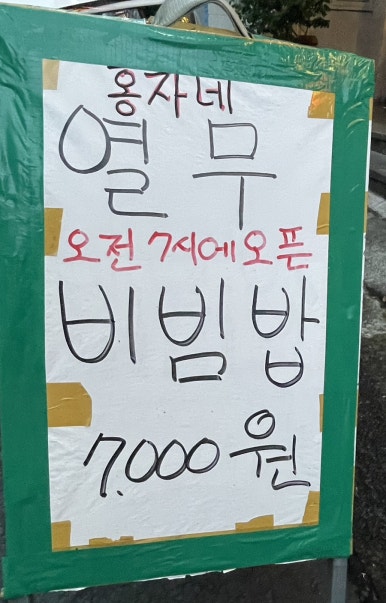 홍자네
열무
오전 7시에 오픈
비빔밥
7.000원